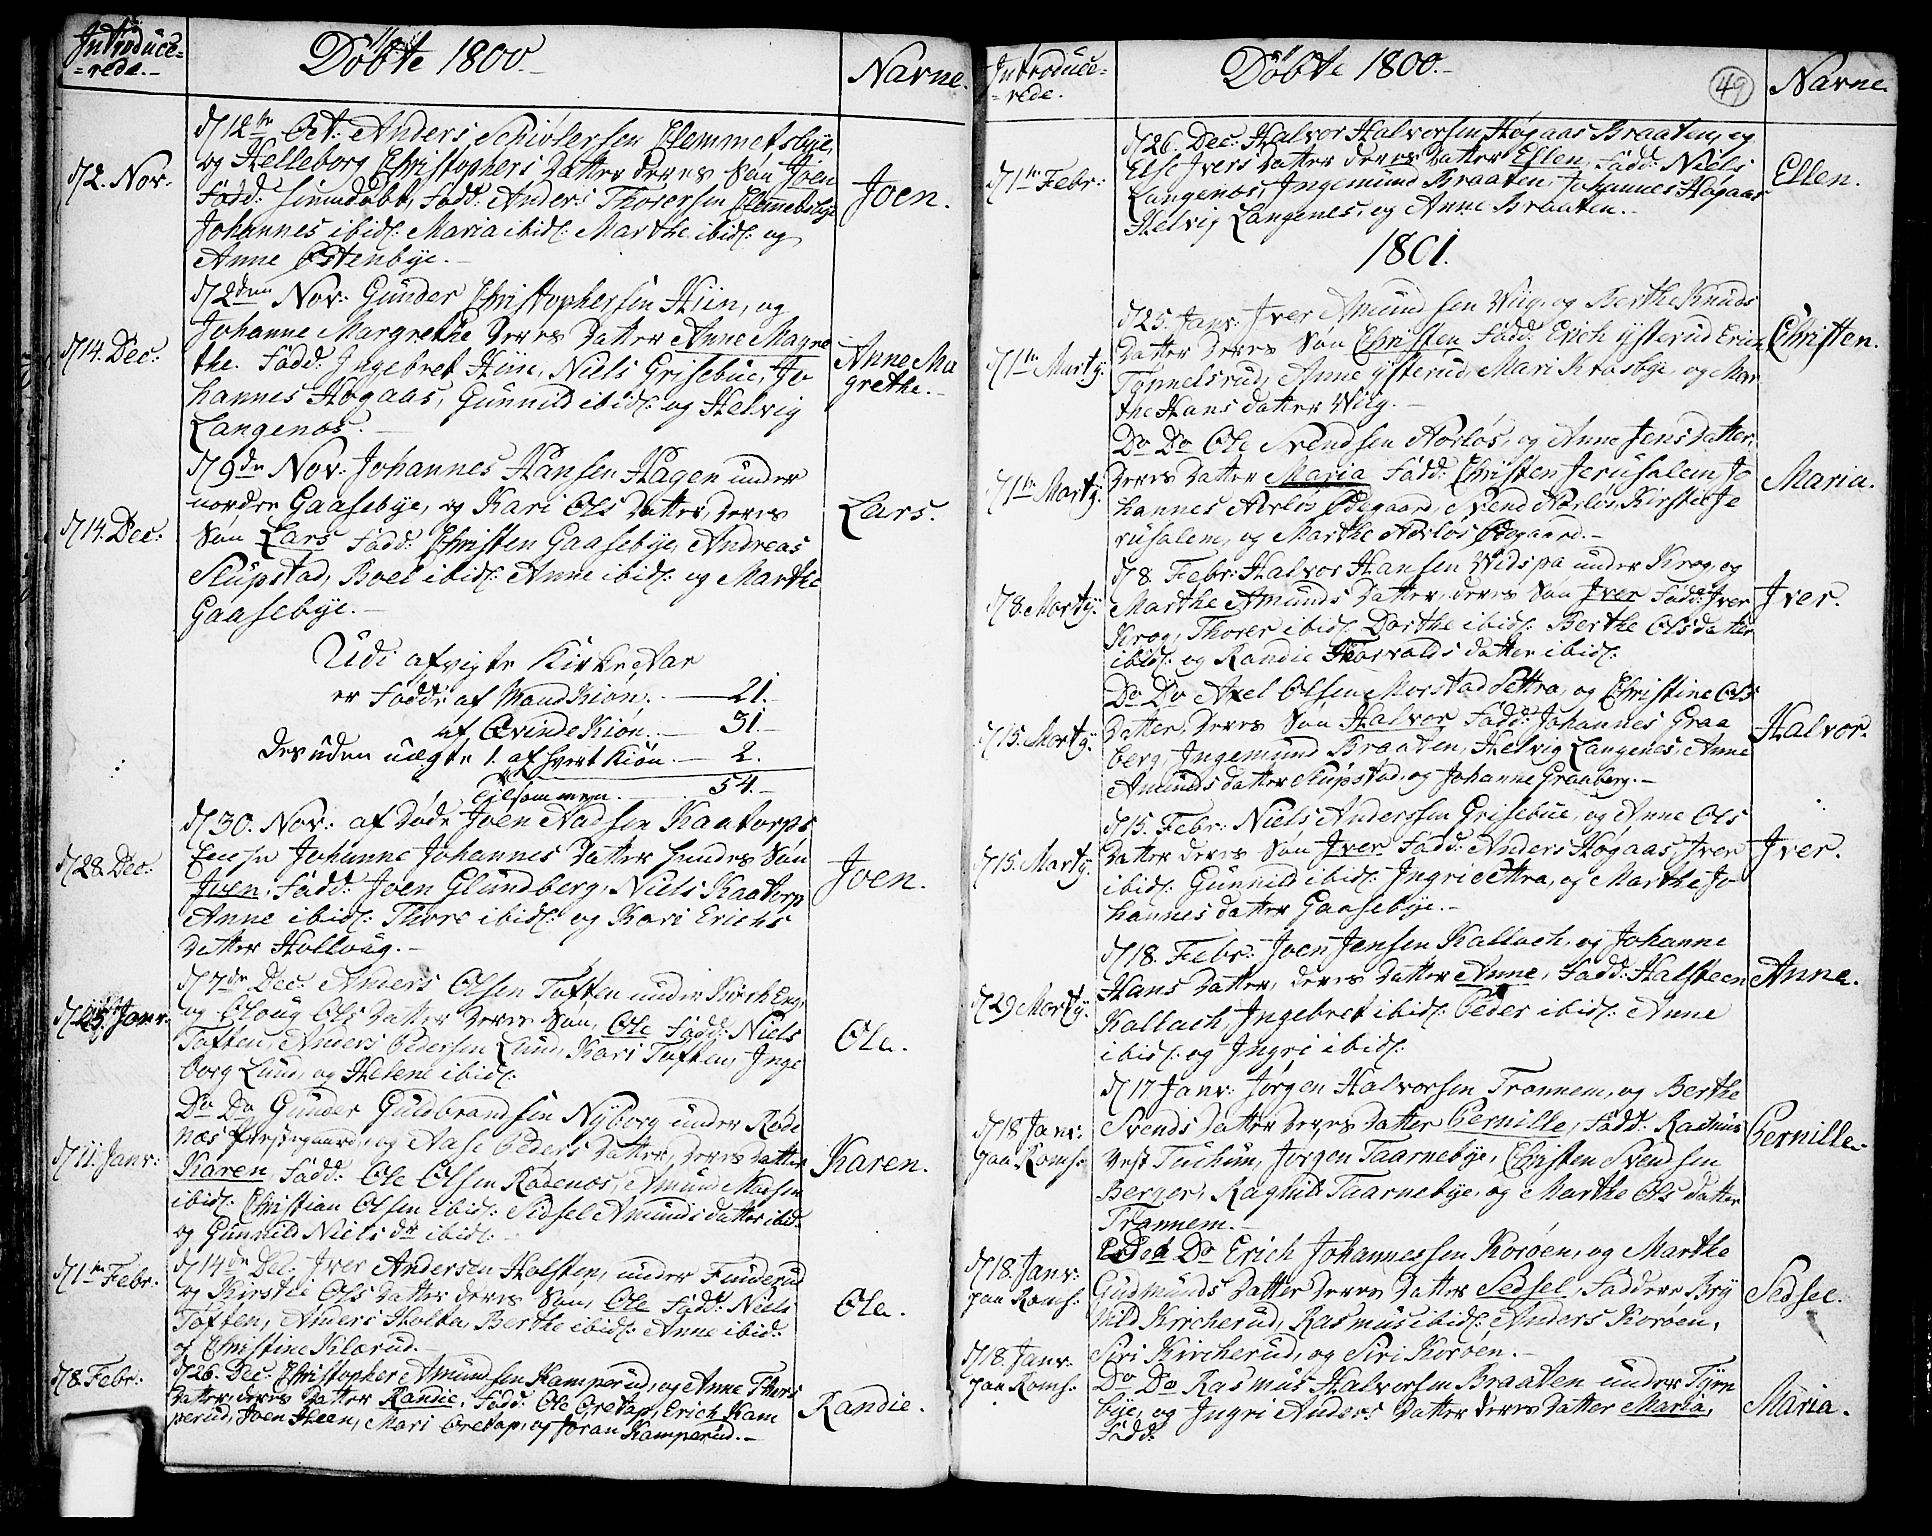 Introduce-
=rede.-
Döbte 1800.-
Navne.
d/2. Nov:
d/12te Oct: Anders Schiölersen Clemmetsbye,
og Helleborg Christophers Datter deres Sön Joen
Fadd: hiemdöbt, Fadd: Anders Thorersen Clemmetsbye
Johannes ibid: Maria ibid: Marthe ibid: og
Anne Østenbye.-
Joen.
d/14. Dec:
d/2den Nov: Gunder Christophersen Hiin, og
Johanne Margrethe deres Datter Anne Magre
the. Fadd: Ingebret Hiin, Niels Grisebue, Jo
hannes Högaas, Gunnild ibid: og Helvig
Langenæs.-
Anne Ma
grethe.-
d/14. Dec:
d/9de Nov: Johannes Hansen Hagen under
nordre Gaasebye, og Kari Ols Datter, deres
Sön Lars Fadd: Christen Gaasebye, Andreas
Skupstad, Boel ibid: Anne ibid: og Marthe
Gaasebye.-
Lars.
Udi afvigte Kirke Aar
er Födde af Mand Kiön.- 21.-
af Qvinde Kiön.- 31.-
Desuden uægte 1. af hvert Kiön.- 2.
Tilsammen.- 54.-
d/28. Dec:
d/30. Nov: af Döde Joen Aadsen Kaatorps
Enche Johanne Johannes Datter hendes Sön
Joen, Fadd: Joen Glundberg, Niels Kaatorp
Anne ibid: Thore ibid: og Kari Erichs
Datter Hollvug.-
Joen.
Janr:
d/7de Dec: Anders Olsen Toften under Kirch Eng,
og Eloug Ols Datter deres Sön, Ole Fadd: Niels
Toften, Anders Pedersen Lund, Kari Toften, Inge
borg Lund, og Helene ibid:
Ole.
d/11. Janr:
Do Do Gunder Guldbrandsen Nÿborg under Röde
næs Præstegaard, og Aase Peders Datter, deres Datter
Karen, Fadd: Ole Olsen Rödenæs, Amund Madsen
ibid: Christian Olsen ibid: Sidsel Amunds datter ibid:
og Gunnild Niels dr ibid:
Karen.
d/1te Febr:
d/14de Dec: Iver Andersen Holsten, under Finderud
og Kirstie Ols Datter deres Sön, Ole Fadd: Niels
Toften, Anders Holta, Berthe ibid: Anne ibid:
og Christine Klærud.-
Ole.
d/8. Febr:
d/26. Dec: Christopher Amundsen Kamperud, og Anne Thors
Datter, deres Datter Randie, Fadd: Ole Oretap, Erich Kam
perud, Joen Heen, Mari Oretap, og Joran Kamperud.-
Randie.
Introduce-
=rede.
Döbte 1800.-
49
Navne.
d/1te Febr:
d/26. Dec: Halvor Halvorsen Högaas Braaten, og
Else Ivers Datter deres Datter Ellen, Fadd: Niels
Langenæs, Ingemund Braaten, Johannes Högaas
Helvig Langenes, og Anne Braaten.-
Ellen.
1801.
d/1te Martÿ:
d/25. Janr: Iver Amundsen Wiig, og Berthe Knuds
Datter deres Sön Christen Fadd: Erich Ÿsterud Erich
Tönnelsrud, Anne Ÿsterud, Mari Krosbye, og Mar
the Hans datter Wiig.-
Christen.
d/1te Martÿ:
Do Do Ole Svendsen Aorlös, og Anne Jens Datter,
deres Datter Maria Fadd: Christen Jerusalem Jo
hannes Aorlös Ødegaard, Svend Aorlös, Kirstie Je
rusalem, og Marthe Aorlös Ødegaard.-
Maria.
d/8. Martÿ:
d/8. Febr: Halvor Hansen Widspa under Krog, og
Marthe Amunds Datter, deres Sön Iver Fadd: Iver
Krog, Thorer ibid: Dorthe ibid: Berthe Ols datter
ibid: og Randie Thorvalds datter ibid:
Iver.
d/15. Martÿ:
Do Do Axel Olsen Morstad Sættra, og Christine Ols
Datter, deres Sön Halvor Fadd: Johannes Graa
berg Ingemund Braaten, Helvig Langenes, Anne
Amunds datter Skupstad, og Johanne Graaberg.-
Halvor.
d/15. Martÿ:
d/15. Febr: Niels Anderssen Grisebue, og Anne Ols
Datter deres Sön Iver Fadd: Anders Högaas Iver
ibid: Gunnild ibid: Ingri Sættra, og Marthe Jo
hannes datter Gaasebye.-
Iver.
d/29 Martÿ:
d/18. Febr: Joen Jensen Kallach, og Johanne
Hans Datter, deres Datter Anne, Fadd: Halsteen
Kallach, Ingebret ibid: Peder ibid: Anne
ibid: og Ingri ibid:
Anne.
d/18 Janr:
paa Roms:
d/17 Janr: Jörgen Halvorsen Trannem, og Berthe
Svends Datter deres Datter Pernille, Fadd: Rasmus
Vest Tuchun, Jörgen Taarnebye, Christen Svendsen
Berger, Ragnild Taarnebye, og Marthe Ols datter
Trannem.-
Pernille.-
d/18. Janr:
paa Roms:
Do Erich Johannessen Koröen, og Marthe
Gudmunds Datter deres Datter Sedsel, Faddere Brÿ
nild Kircherud, Rasmus ibid: Anders Koröen,
Siri Kircherud, og Siri Koröen.-
Sedsel.
d/18. Janr:
paa Roms:
Do Do Rasmus Halvorsen Braaten under Tÿrn
bye, og Ingri Anders Datter deres Datter Maria,
Fadd:
Maria.